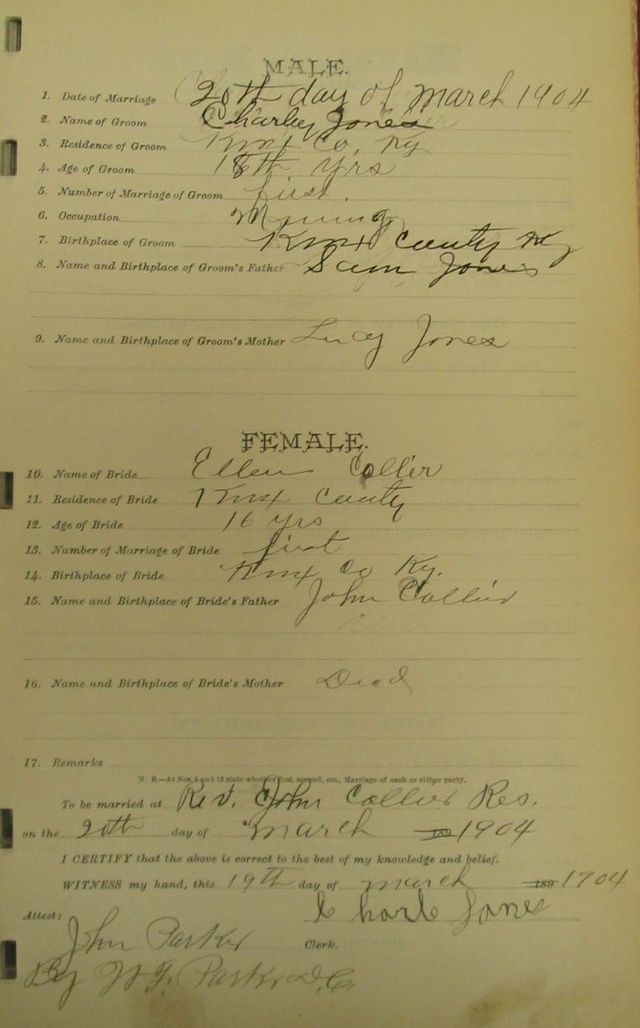 MALE.
1. Date of Marriage 20th day of March 1904
2. Name of Groom Charley Jones
3. Residence of Groom Knox Co, Ky
4. Age of Groom 18th yrs
5. Number of Marriage of Groom first.
6. Occupation Mining
7. Birthplace of Groom Knox County Ky
8. Name and Birthplace of Groom's Father Sam Jones
9. Name and Birthplace of Groom's Mother Lucy Jones
FEMALE.
10. Name of Bride Ellen Collier
11. Residence of Bride Knox County
12. Age of Bride 16 yrs
13. Number of Marriage of Bride first
14. Birthplace of Bride Knox Co Ky.
15. Name and Birthplace of Bride's Father John Collier
16. Name and Birthplace of Bride's Mother Dead
17. Remarks
N. B.—At Nos. 5 and 13 state whether first, second, etc., Marriage of each or either party.
To be married at Rev. John Collier Res.
on the 20th day of March 189 1904
I CERTIFY that the above is correct to the best of my knowledge and belief.
WITNESS my hand, this 19th day of March 189 1904
Attest: Charle Jones
John Parker Clerk.
By W. F. Parker D.C.